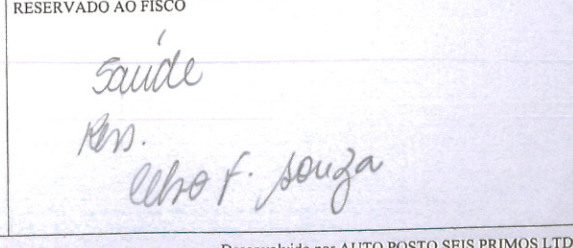 RESERVADO AO FISCO
Saúde
Res.
Celso F. Souza
Desenvolvido por AUTO POSTO SEIS PRIMOS LTD